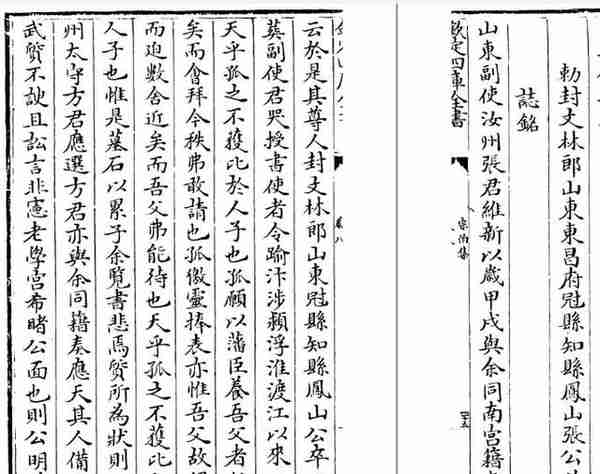 勅封文林郎山東東昌府冠縣知縣鳳山張公
誌銘
山東副使汝州張君維新以歲甲戌與余同南宮籍
欽定四庫全書
宗伯集
云於是其尊人封文林郎山東冠縣知縣鳳山公卒
塟副使君哭授書使者令踰汴涉潁浮淮渡江以來
天乎孤之不獲比於人子也孤願以藩臣養吾父者
矣而會拜令秩弗敢請也孤徼靈捧表亦惟吾父故
而迺數舍近矣而吾父弗能待也天乎孤之不獲比
人子也惟是墓石以累子余覽書悲焉質所為狀則
州太守方君應選方君亦與余同籍奏應天其人備
武質不諛且訟言非憲老學宮希睹公面也則公明